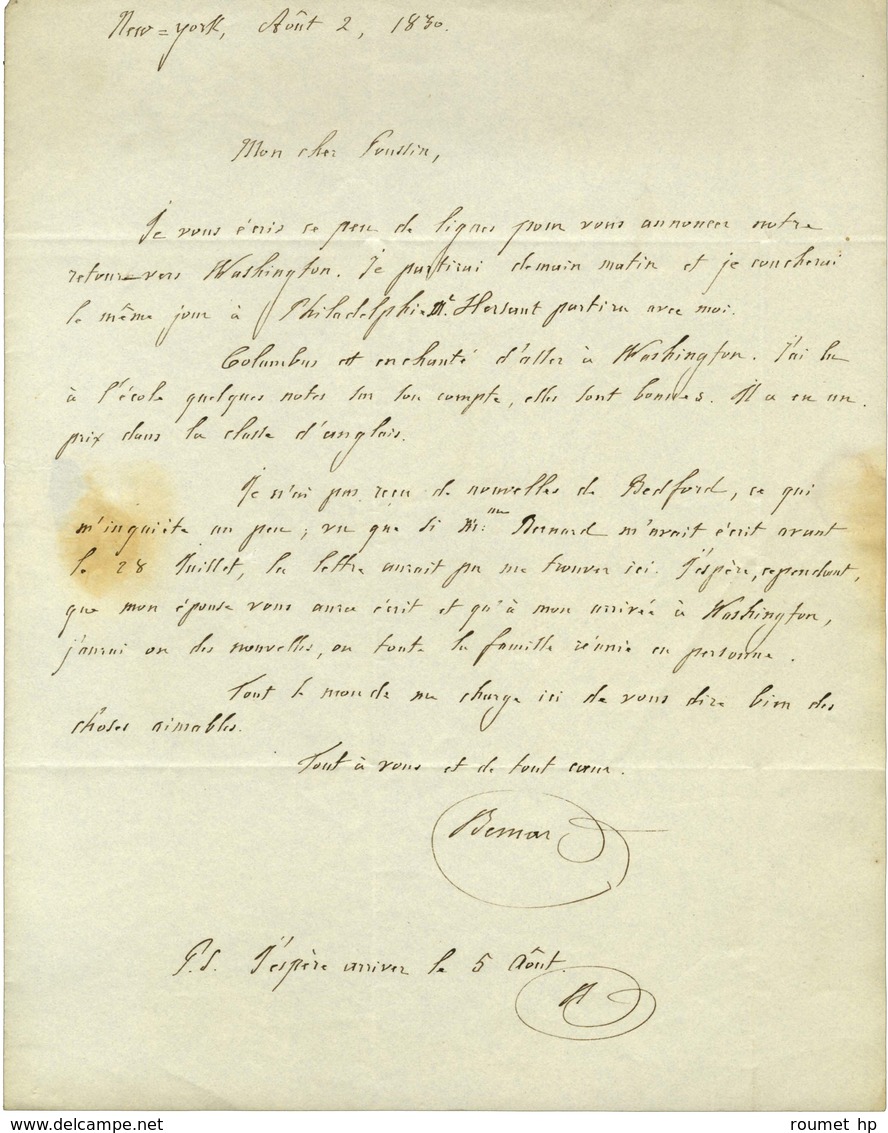 New=york, Août 2, 1830.
Mon cher Poussin,
Je vous écris ce peu de lignes pour vous annoncer notre
retour vers Washington. Je partirai demain matin et je coucherai
le même jour à Philadelphie. Mr. Hersant partira avec moi.
Columbus est enchanté d'aller à Washington. J'ai lu
à l'école quelques notes sur son compte, elles sont bonnes. Il a eu un
prix dans la classe d'anglais.
Je n'ai pas reçu de nouvelles de Bedford, ce qui
m'inquiète un peu; vu que si Mme Bernard m'avait écrit avant
le 28 Juillet, la lettre aurait pu me trouver ici. J'espère, cependant,
que mon épouse vous aura écrit et qu'à mon arrivée à Washington,
j'aurai ou des nouvelles, ou toute la famille réunie en personne.
Tout le monde me charge ici de vous dire bien des
choses aimables.
Tout à vous et de tout cœur.
Bernard
P.S. J'espère arriver le 5 Août.
B
www.delcampe.net
roumet hp